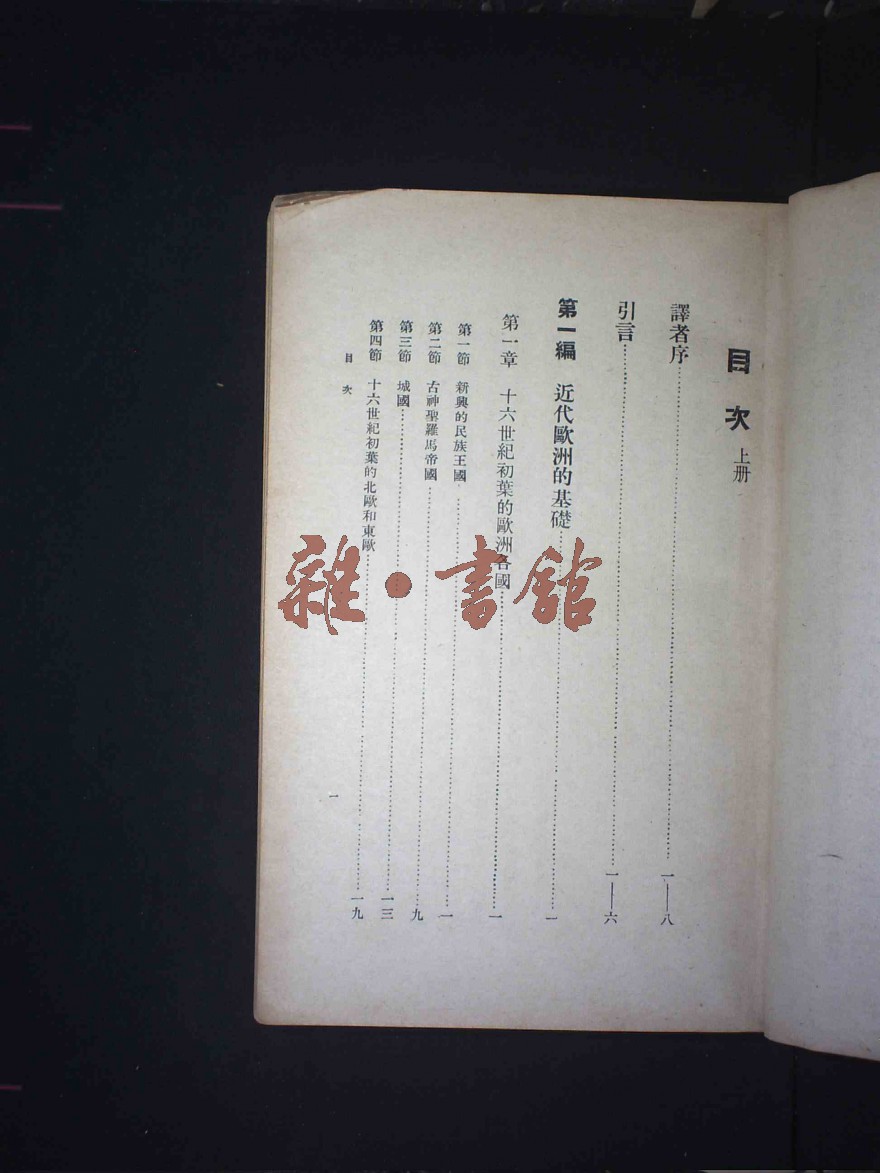 目次 上册
譯者序……一——八
引言……一——六
第一編 近代歐洲的基礎……一
第一章 十六世紀初葉的歐洲各國……一
第一節 新興的民族王國……一
第二節 古神聖羅馬帝國……九
第三節 城國……一三
第四節 十六世紀初葉的北歐和東歐……一九
目次
一
雜·書館